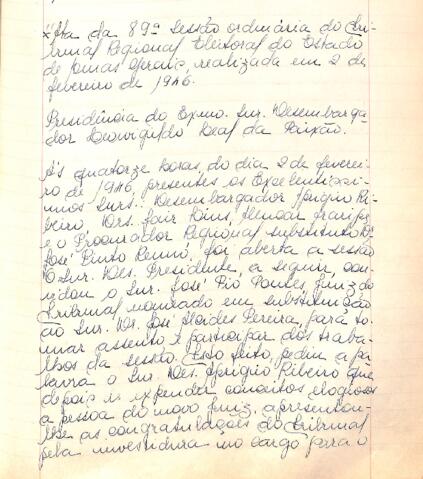 "Ata da 89ª sessão ordinária do Tri-
bunal Regional Eleitoral do Estado
de Minas Gerais, realizada em 2 de
fevereiro de 1946.
Presidência do Exmo. Snr. Desembarga-
dor Leovigildo Leal da Paixão.
Às quatorze horas, do dia 2 de feverei-
ro de 1946, presentes os Excelentíssi-
mos Snrs. Desembargador Aprígio Ri-
beiro, Drs. Jair Lins,
e o Procurador Regional substituto Dr.
José Pinto Renó, foi aberta a sessão
O Snr. Des. Presidente, a seguir, con-
vidou o Snr. José Pio Pontes, juiz do
Tribunal nomeado em substituição
ao Snr. Dr. José Alcides Pereira, para to-
mar assento e participar dos traba-
lhos da sessão. Isto feito, pediu a pa-
lavra o Snr. Des. Aprígio Ribeiro que,
depois de expender conceitos elogiosos
a pessoa do novo juiz, apresentou-
lhe as congratulações do Tribunal
pela investidura no cargo para o